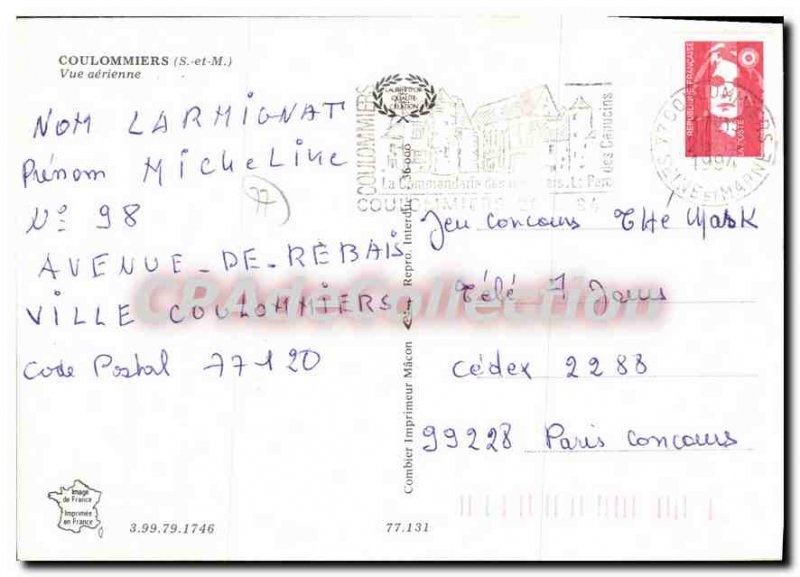 COULOMMIERS (S.-et-M.)
Vue aérienne
NOM LARMIGNAT
Prénom MICHELINE
N° 98
AVENUE-DE-REBAIS
VILLE COULOMMIERS
Code Postal 77120
77
Image
de France
Imprimée
en France
3.99.79.1746
77.131
Combier Imprimeur Mâcon
Repro. Interdite
36-000
LABEL D'OR
COULOMMIERS
La Commanderie des
Le Parc
des Capucins
COULOMMIERS
REPUBLIQUE FRANÇAISE
LA POSTE
77 COULOMMIERS
1994
SEINE ET MARNE
Jeu Concours THE Mask
Télé 7 Jours
Cédex 2288
99228 Paris Concours
CPAdeCollection